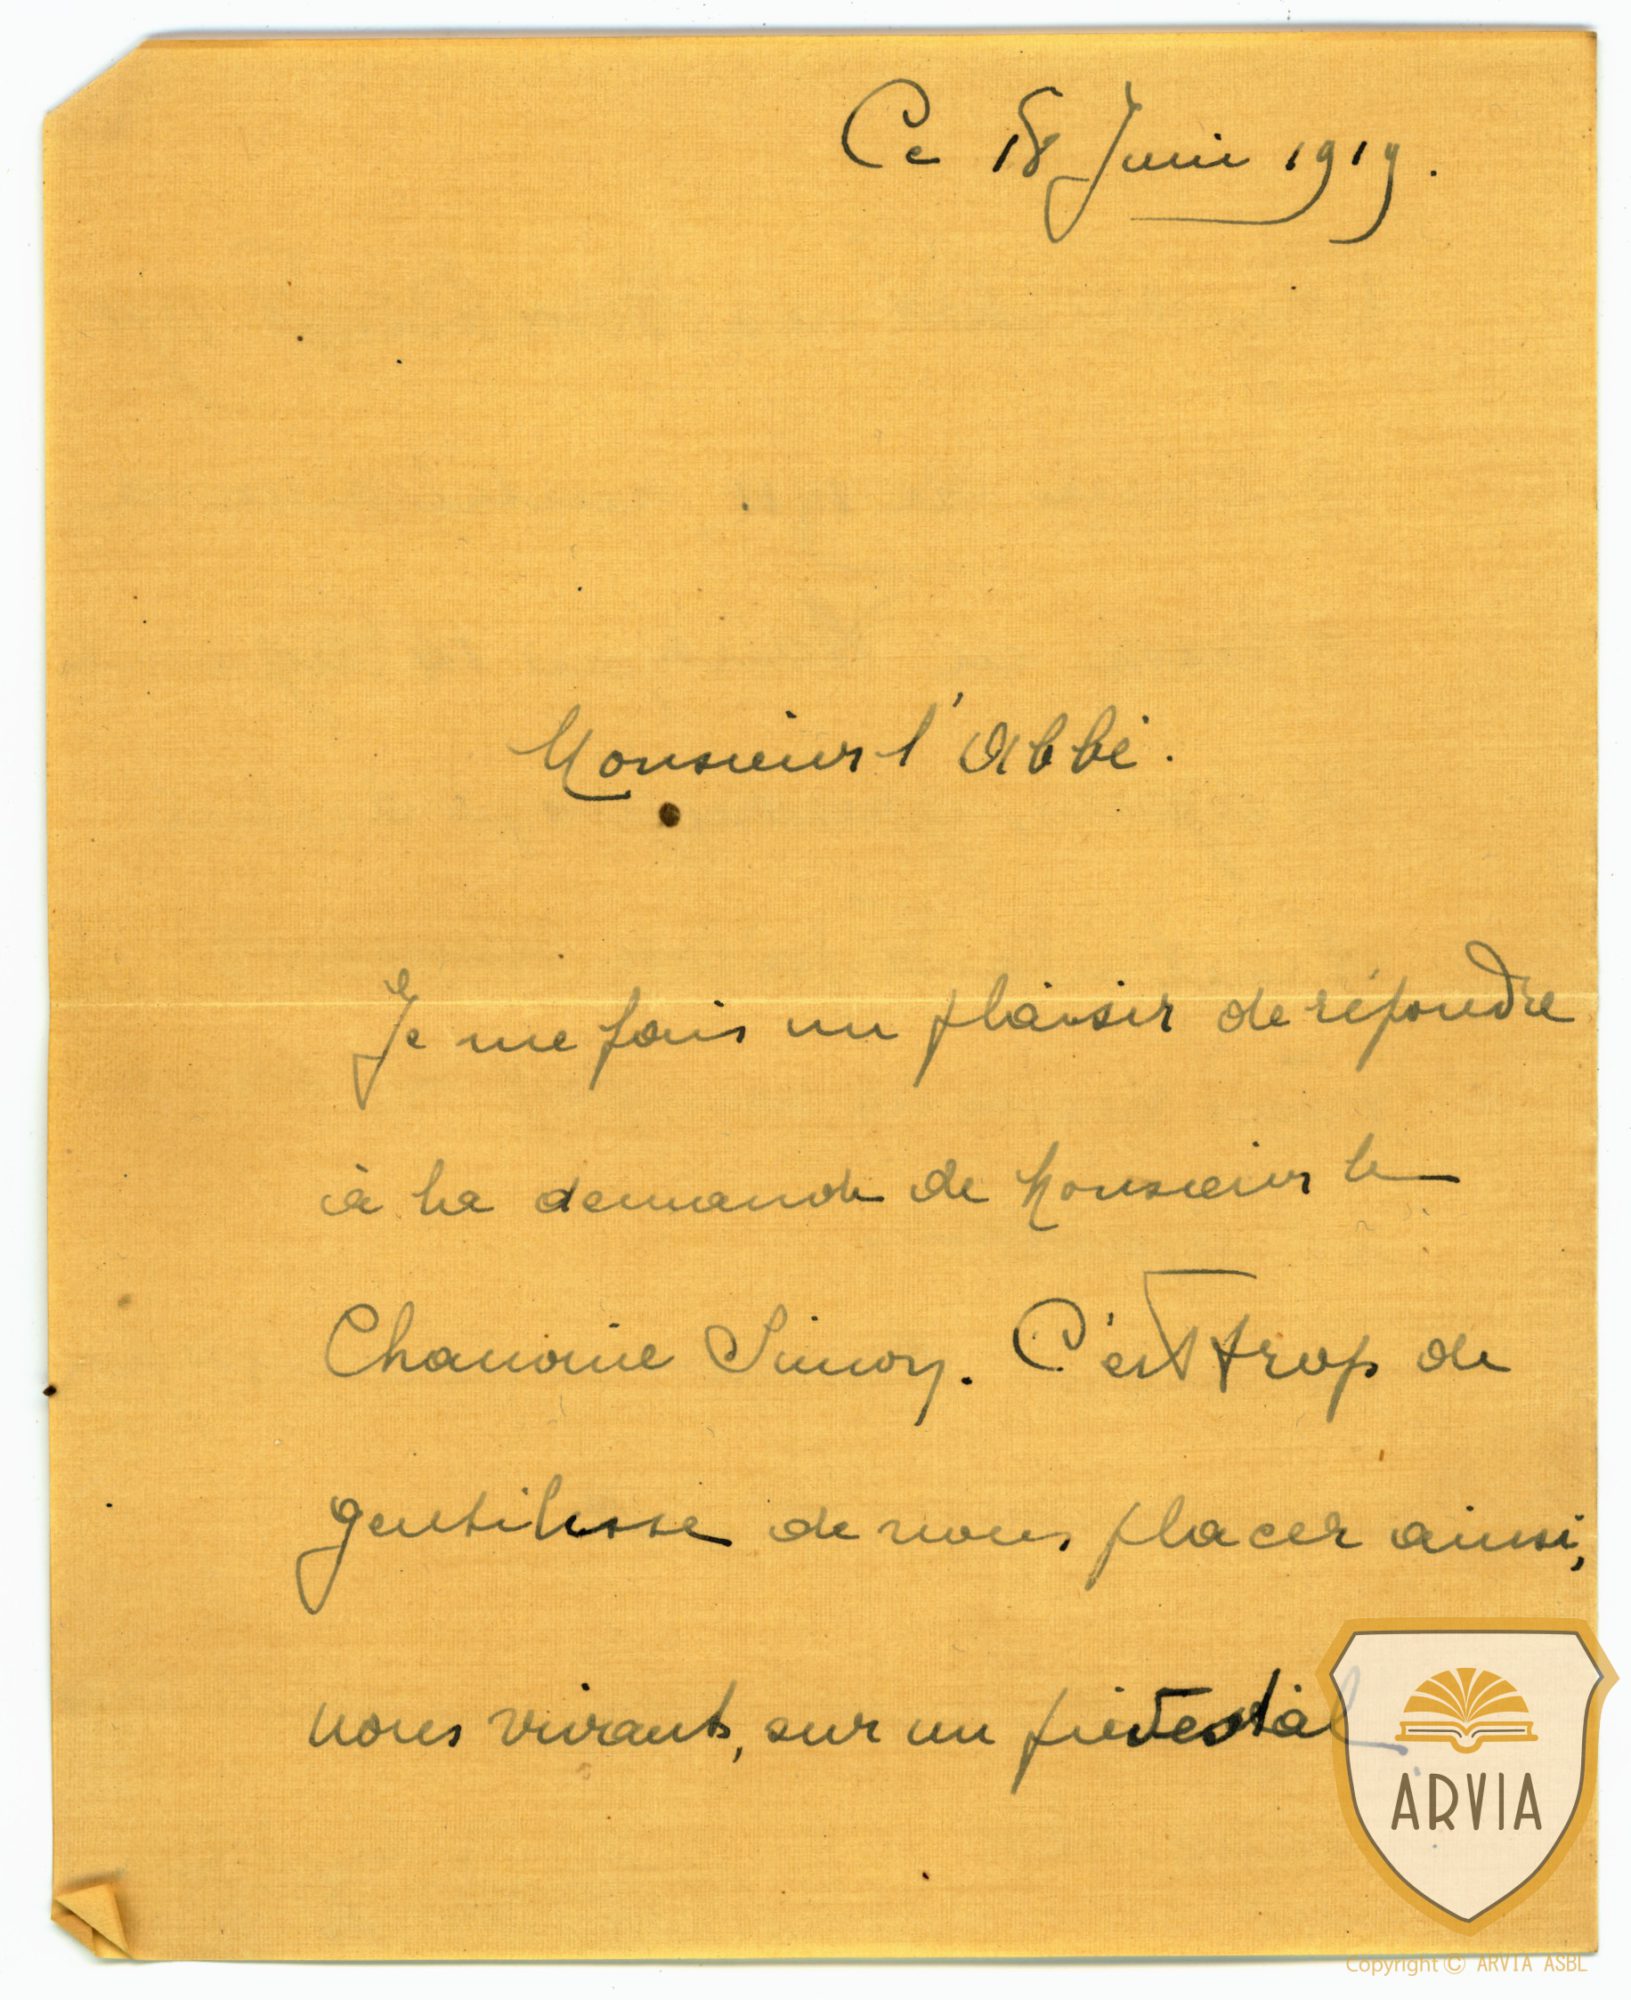 Ce 18 Juin 1919.
Monsieur l'Abbé.
Je me fais un plaisir de répondre
à la demande de Monsieur le
Chanoine Simon. C'est trop de
gentillesse de nous placer ainsi,
nous vivants, sur un piédestal
ARVIA
Copyright © ARVIA ASBL